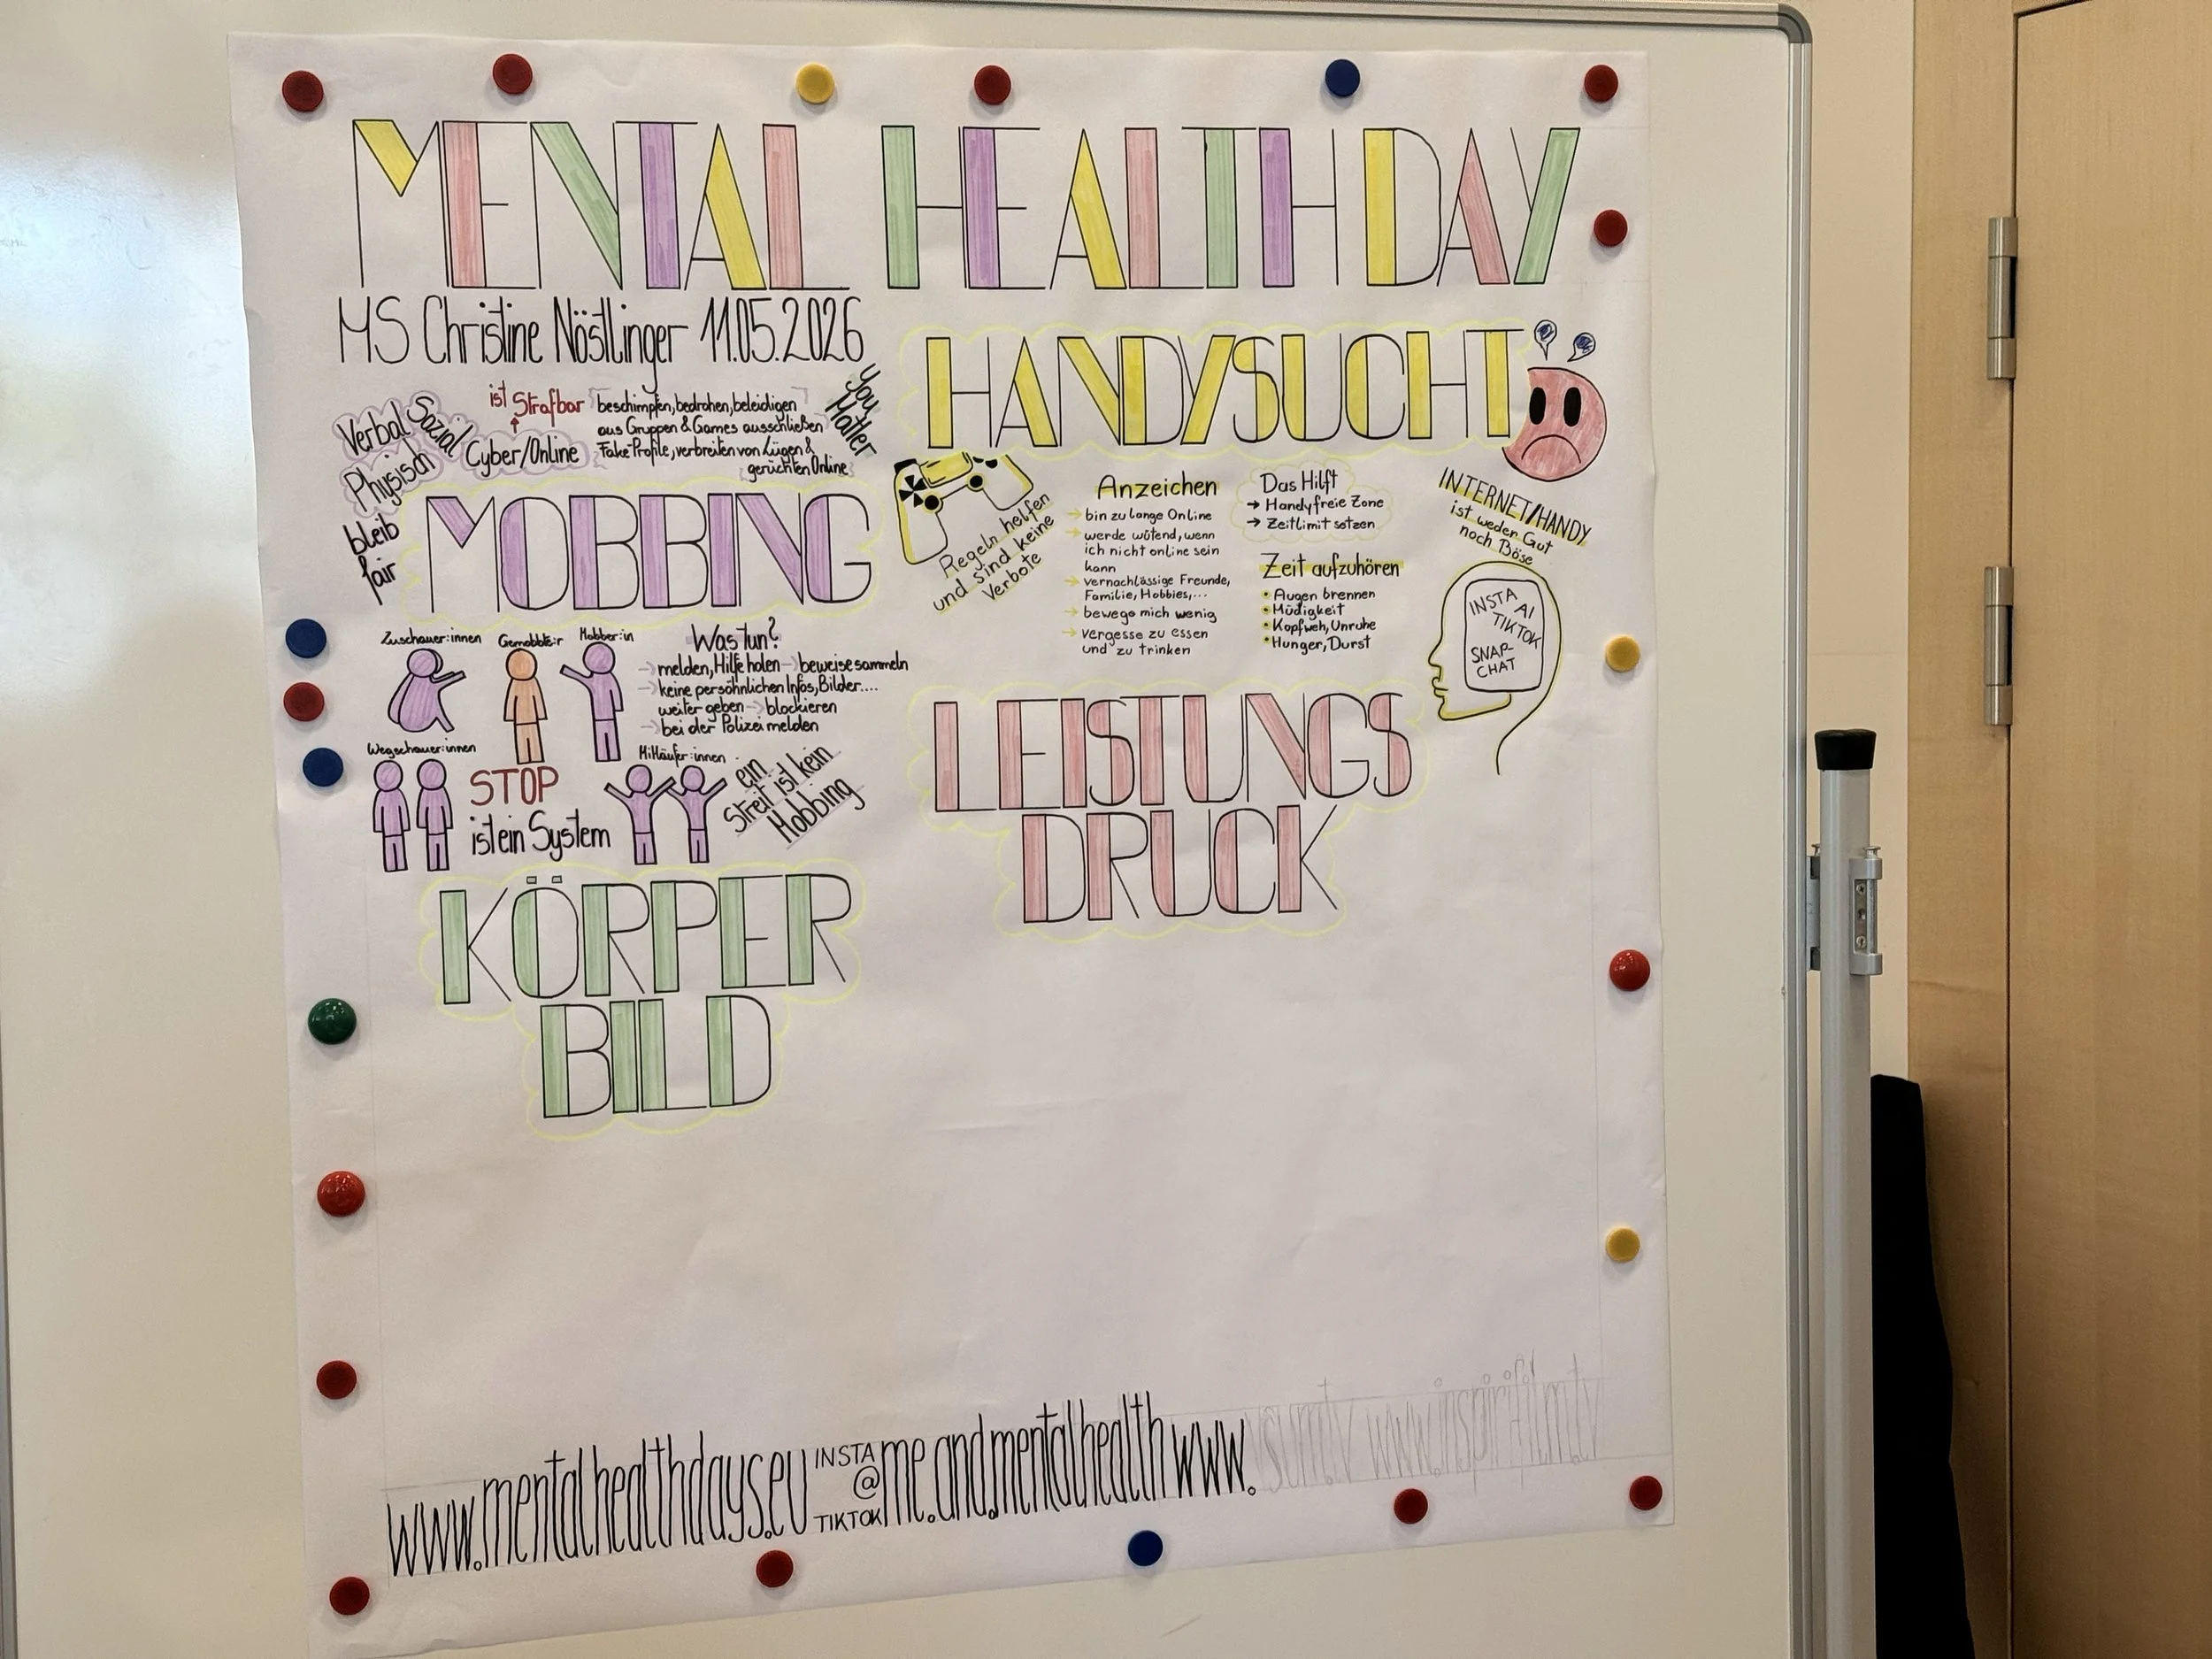 MENTAL HEALTH DAY
MS Christine Nöstlinger 11.05.2026
Verbal
Sozial
Physisch
Cyber/Online
ist Strafbar
beschimpfen, bedrohen, beleidigen
aus Gruppen & Games ausschließen
Fake Profile, verbreiten von Lügen &
gerüchten Online
You
Matter
bleib
fair
MOBBING
Zuschauer:innen
Gemobbte:r
Mobber:in
Wegschauer:innen
Mitläufer:innen
Was tun?
→ melden, Hilfe holen → beweise sammeln
→ keine persöhnlichen Infos, Bilder....
weiter geben → blockieren
→ bei der Polizei melden
STOP
ist ein System
ein
Streit ist kein
Mobbing
KÖRPER
BILD
HANDYSUCHT
Regeln helfen
und sind keine
Verbote
Anzeichen
→ bin zu lange Online
→ werde wütend, wenn
ich nicht online sein
kann
→ vernachlässige Freunde,
Familie, Hobbies,...
→ bewege mich wenig
→ vergesse zu essen
und zu trinken
Das Hilft
→ Handyfreie Zone
→ Zeitlimit setzen
Zeit aufzuhören
• Augen brennen
• Müdigkeit
• Kopfweh, Unruhe
• Hunger, Durst
INTERNET/HANDY
ist weder Gut
noch Böse
INSTA
AI
TIKTOK
SNAP-
CHAT
LEISTUNGS
DRUCK
www.mentalhealthdays.eu INSTA @ TIKTOK me.and.mentalhealth www.
www.inspirifilm.tv